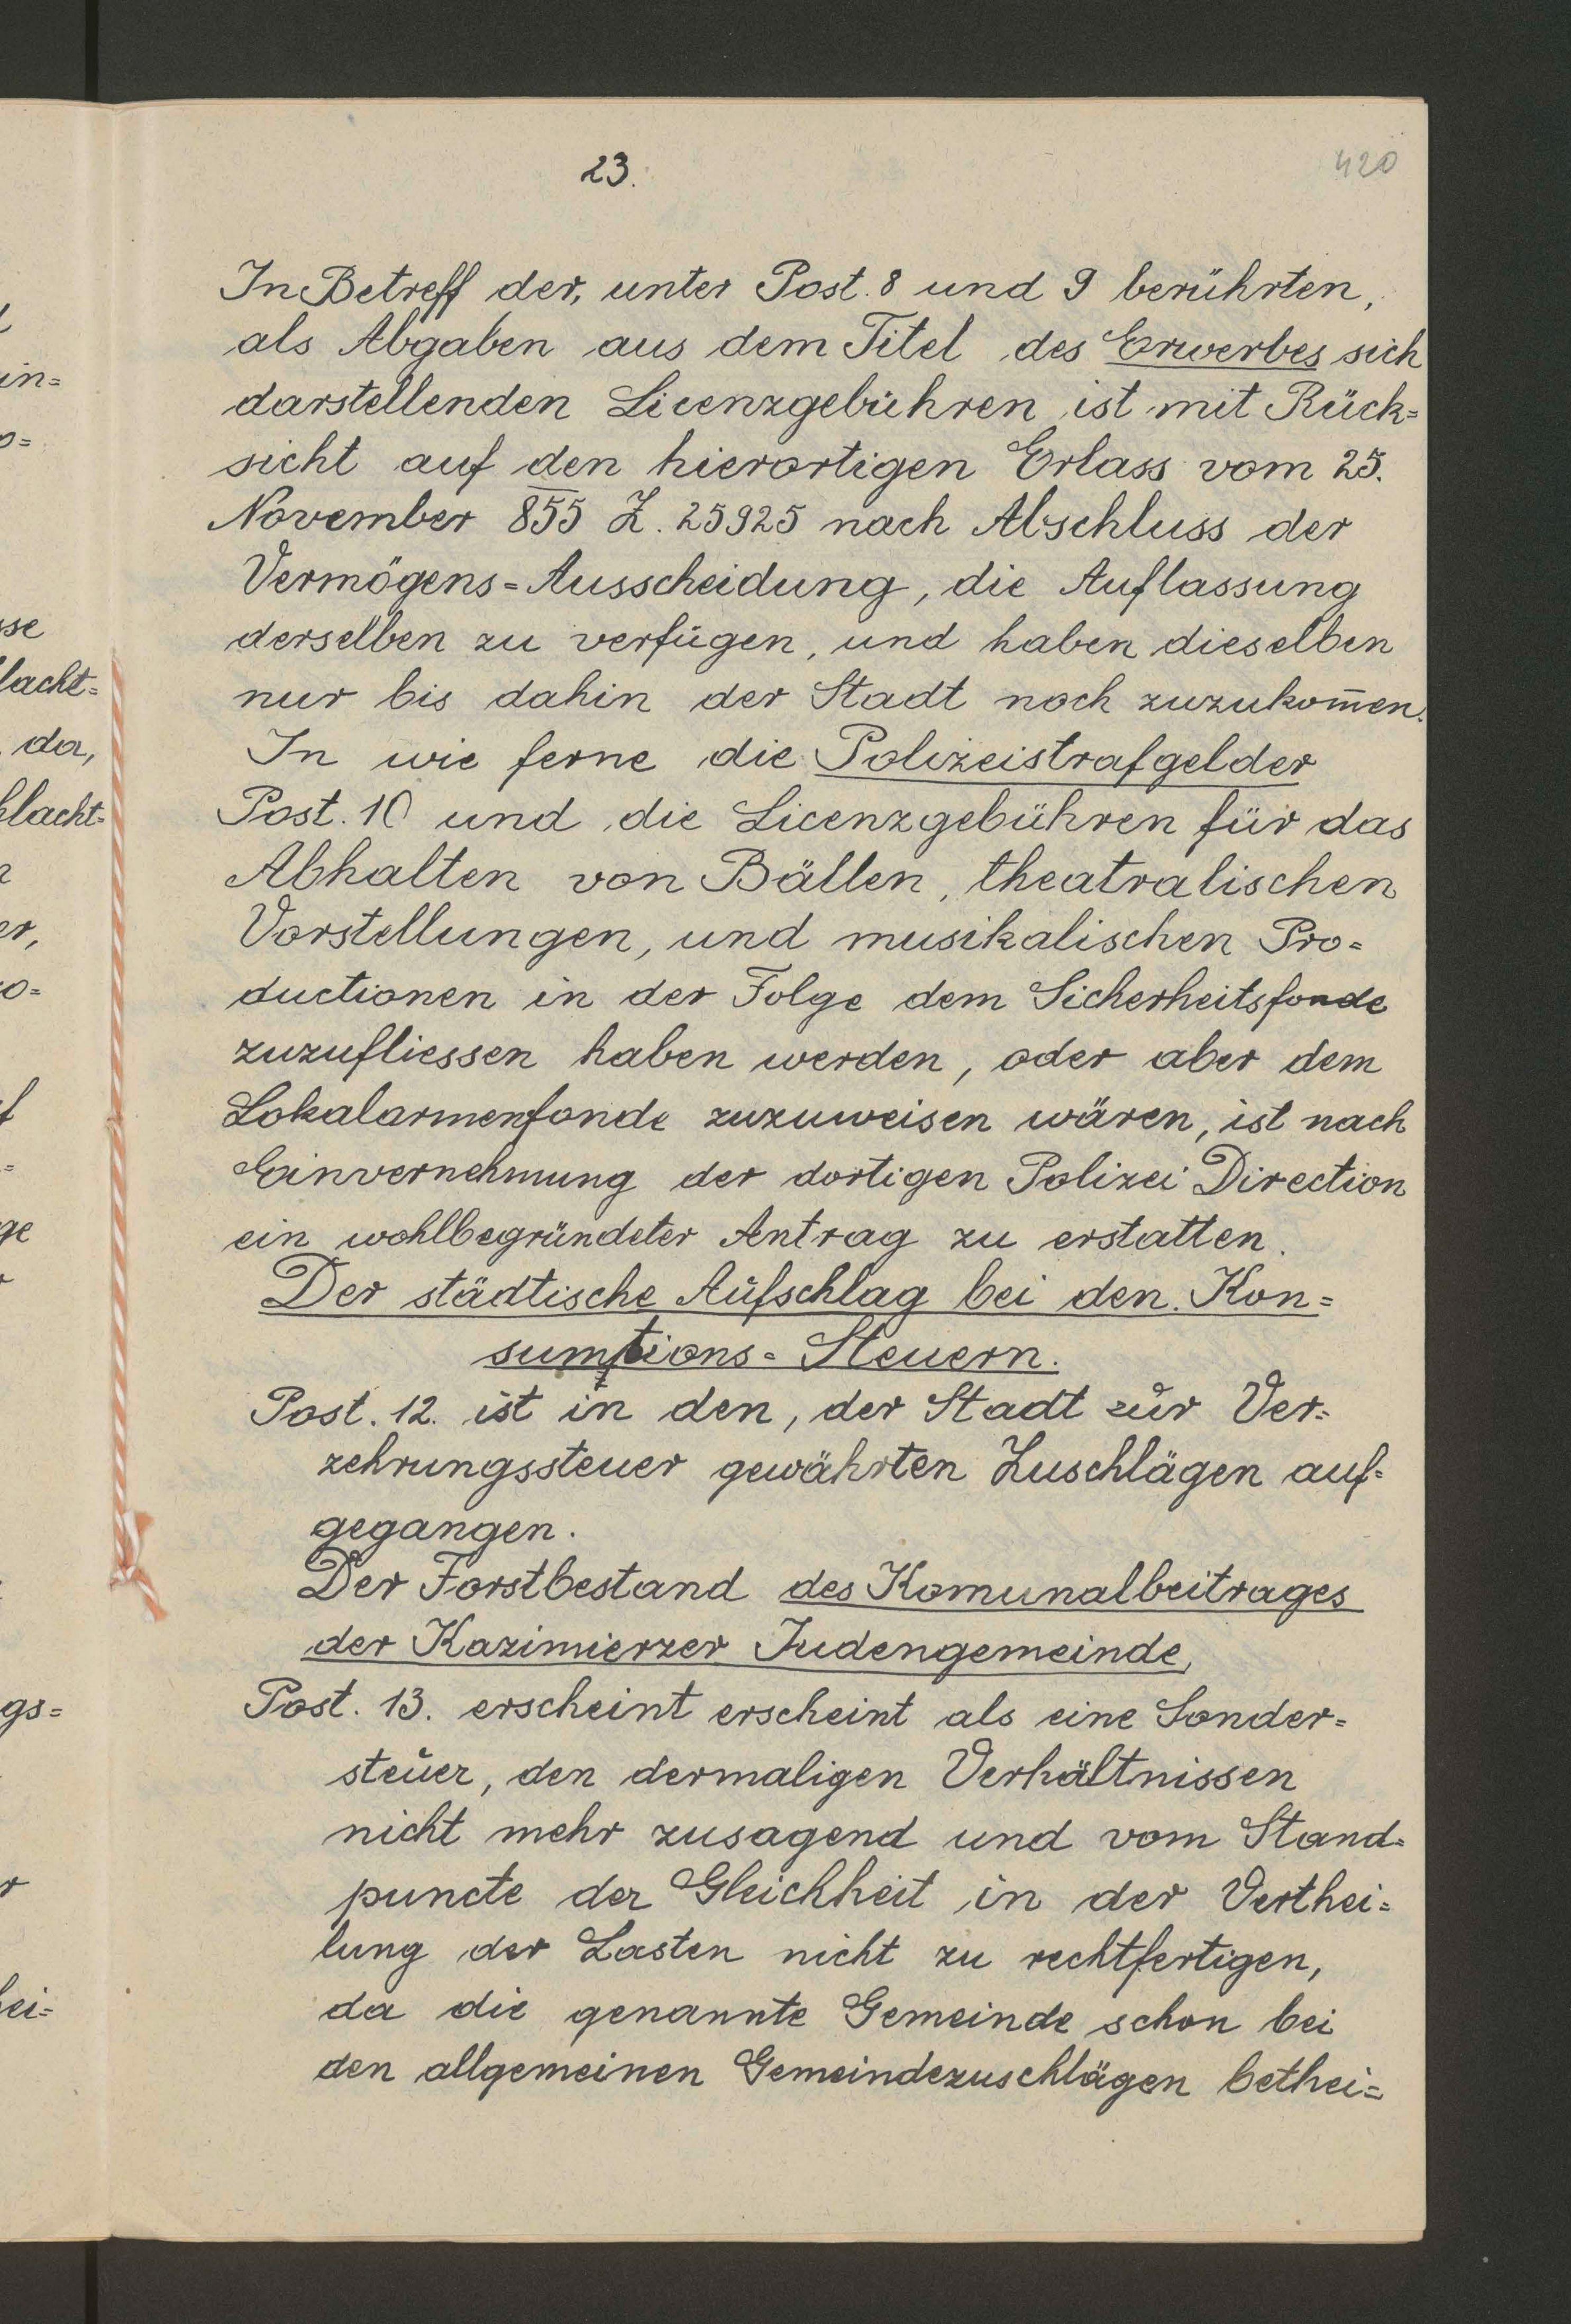 23.
420
In Betreff der, unter Post. 8 und 9 berührten,
als Abgaben aus dem Titel des Erwerbes sich
darstellenden Licenzgebühren ist mit Rück=
sicht auf den hierortigen Erlass vom 25.
November 855 Z. 25925 nach Abschluss der
Vermögens=Ausscheidung, die Auflassung
derselben zu verfügen, und haben dieselben
nur bis dahin der Stadt noch zuzukom̅en.
In wie ferne die Polizeistrafgelder
Post. 10 und die Licenzgebühren für das
Abhalten von Bällen, theatralischen
Vorstellungen, und musikalischen Pro=
ductionen in der Folge dem Sicherheitsfonde
zuzufliessen haben werden, oder aber dem
Lokalarmenfonde zuzuweisen wären, ist nach
Einvernehmung der dortigen Polizei Direction
ein wohlbegründeter Antrag zu erstatten.
Der städtische Aufschlag bei den Kon=
sumtions=Steuern.
Post. 12. ist in den, der Stadt zur Ver=
zehrungssteuer gewährten Zuschlägen auf=
gegangen.
Der Forstbestand des Komunalbeitrages
der Kazimierzer Judengemeinde,
Post. 13. erscheint erscheint als eine Sonder=
steuer, den dermaligen Verhältnissen
nicht mehr zusagend und vom Stand=
puncte der Gleichheit in der Verthei=
lung der Lasten nicht zu rechtfertigen,
da die genannte Gemeinde schon bei
den allgemeinen Gemeindezuschlägen bethei=